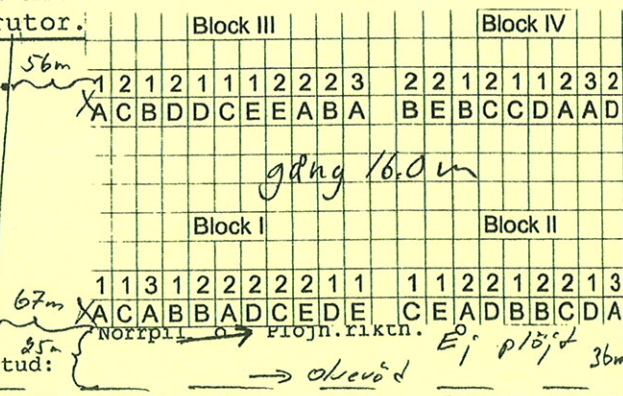 rutor.
Block III Block IV
56m
1 2 1 2 1 1 1 2 2 2 3 2 2 1 2 1 1 2 3 2
X A C B D D C E E A B A B E B C C D A A D
gång 16.0 m
Block I Block II
1 1 3 1 2 2 2 2 2 1 1 1 1 2 2 1 2 2 1 3
67m X A C A B B A D C E D E C E A D B B C D A
Norrpil o → Plöjn.riktn. Ej plöjt
25m 36m
tud: →